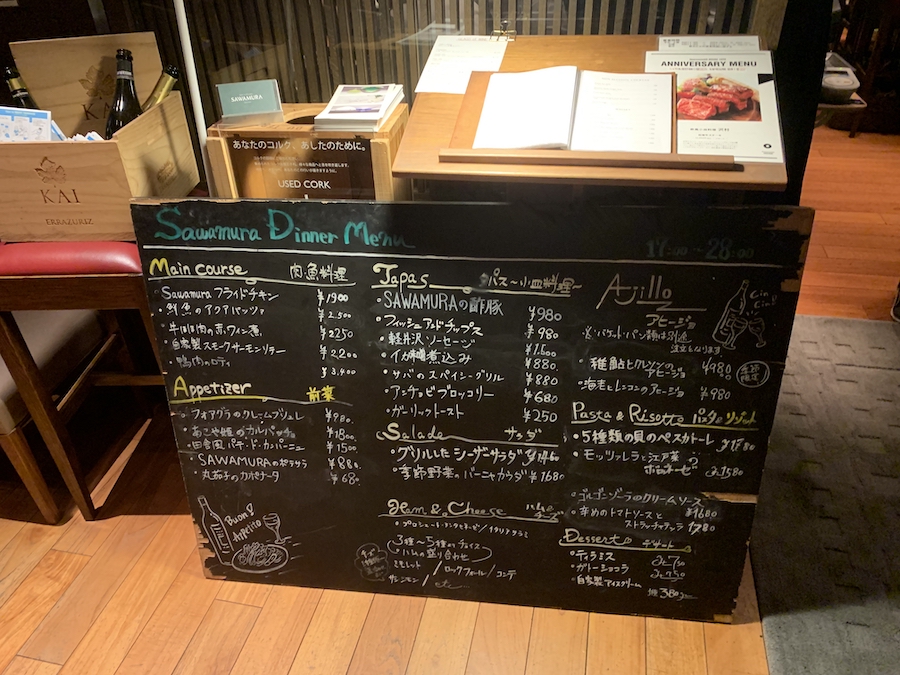 KAI
KAI
ERRAZURIZ
SAWAMURA
あなたのコルク、あしたのために。
USED CORK
ANNIVERSARY MENU
Sawamura Dinner Menu
17:00 → 28:00
Main course 肉・魚料理
・Sawamura フライドチキン ¥1900
・鮮魚のアクアパッツァ ¥2,500
・牛ホホ肉の赤ワイン煮 2250
・自家製スモークサーモンソテー ¥2,200
・鴨肉のロティ ¥3,400
Appetizer 前菜
・フォアグラのクレームブリュレ
・あこや鯛のカルパッチョ ¥1800
・田舎風パテ・ド・カンパーニュ ¥1500
・SAWAMURAのポテサラ ¥880
・丸茄子のカポナータ ¥680
Buon
Appetito
Tapas タパス～小皿料理～
・SAWAMURAの酢豚 ¥980
・フィッシュアンドチップス ¥980
・軽井沢ソーセージ ¥1,600
・イカ墨煮込み ¥880
・サバのスパイシーグリル ¥880
・アンチョビブロッコリー ¥680
・ガーリックトースト ¥250
Salade サラダ
・グリルしたシーザーサラダ ¥1460
・季節野菜のバーニャカウダ ¥1680
Ham & Cheese ハム&チーズ
・プロシュート
3種～5種のチョイス
・ハムの盛り合わせ
ミモレット / ロックフォール / コンテ
etc
Ajillo
アヒージョ
※バケット・パン類は別途
注文となります
Cin
Cin!
・稚鮎とクレソンのアヒージョ ¥980
季節限定
・海老とレンコンのアヒージョ ¥980
Pasta & Risotto パスタ・リゾット
・5種類の貝のペスカトーレ ¥1780
・モッツァレラと江戸菜のボロネーゼ 1580
・ゴルゴンゾーラのクリームソース ¥1680
・辛めのトマトソースとストラッチャテッラ 1780
Dessert デザート
・ティラミス 750
・ガトーショコラ 750
・自家製アイスクリーム 380